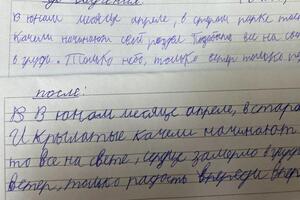 В юном месяце апреле, в старом парке тает
Качели начинают свой разбег. Позабыто все на свете
в груди. Только небо, только ветер только
после:
В В юном месяце апреле, в стара
И Крылатые качели начинают
то все на свете, сердце замерло в груди
ветер, только радость впереди впер